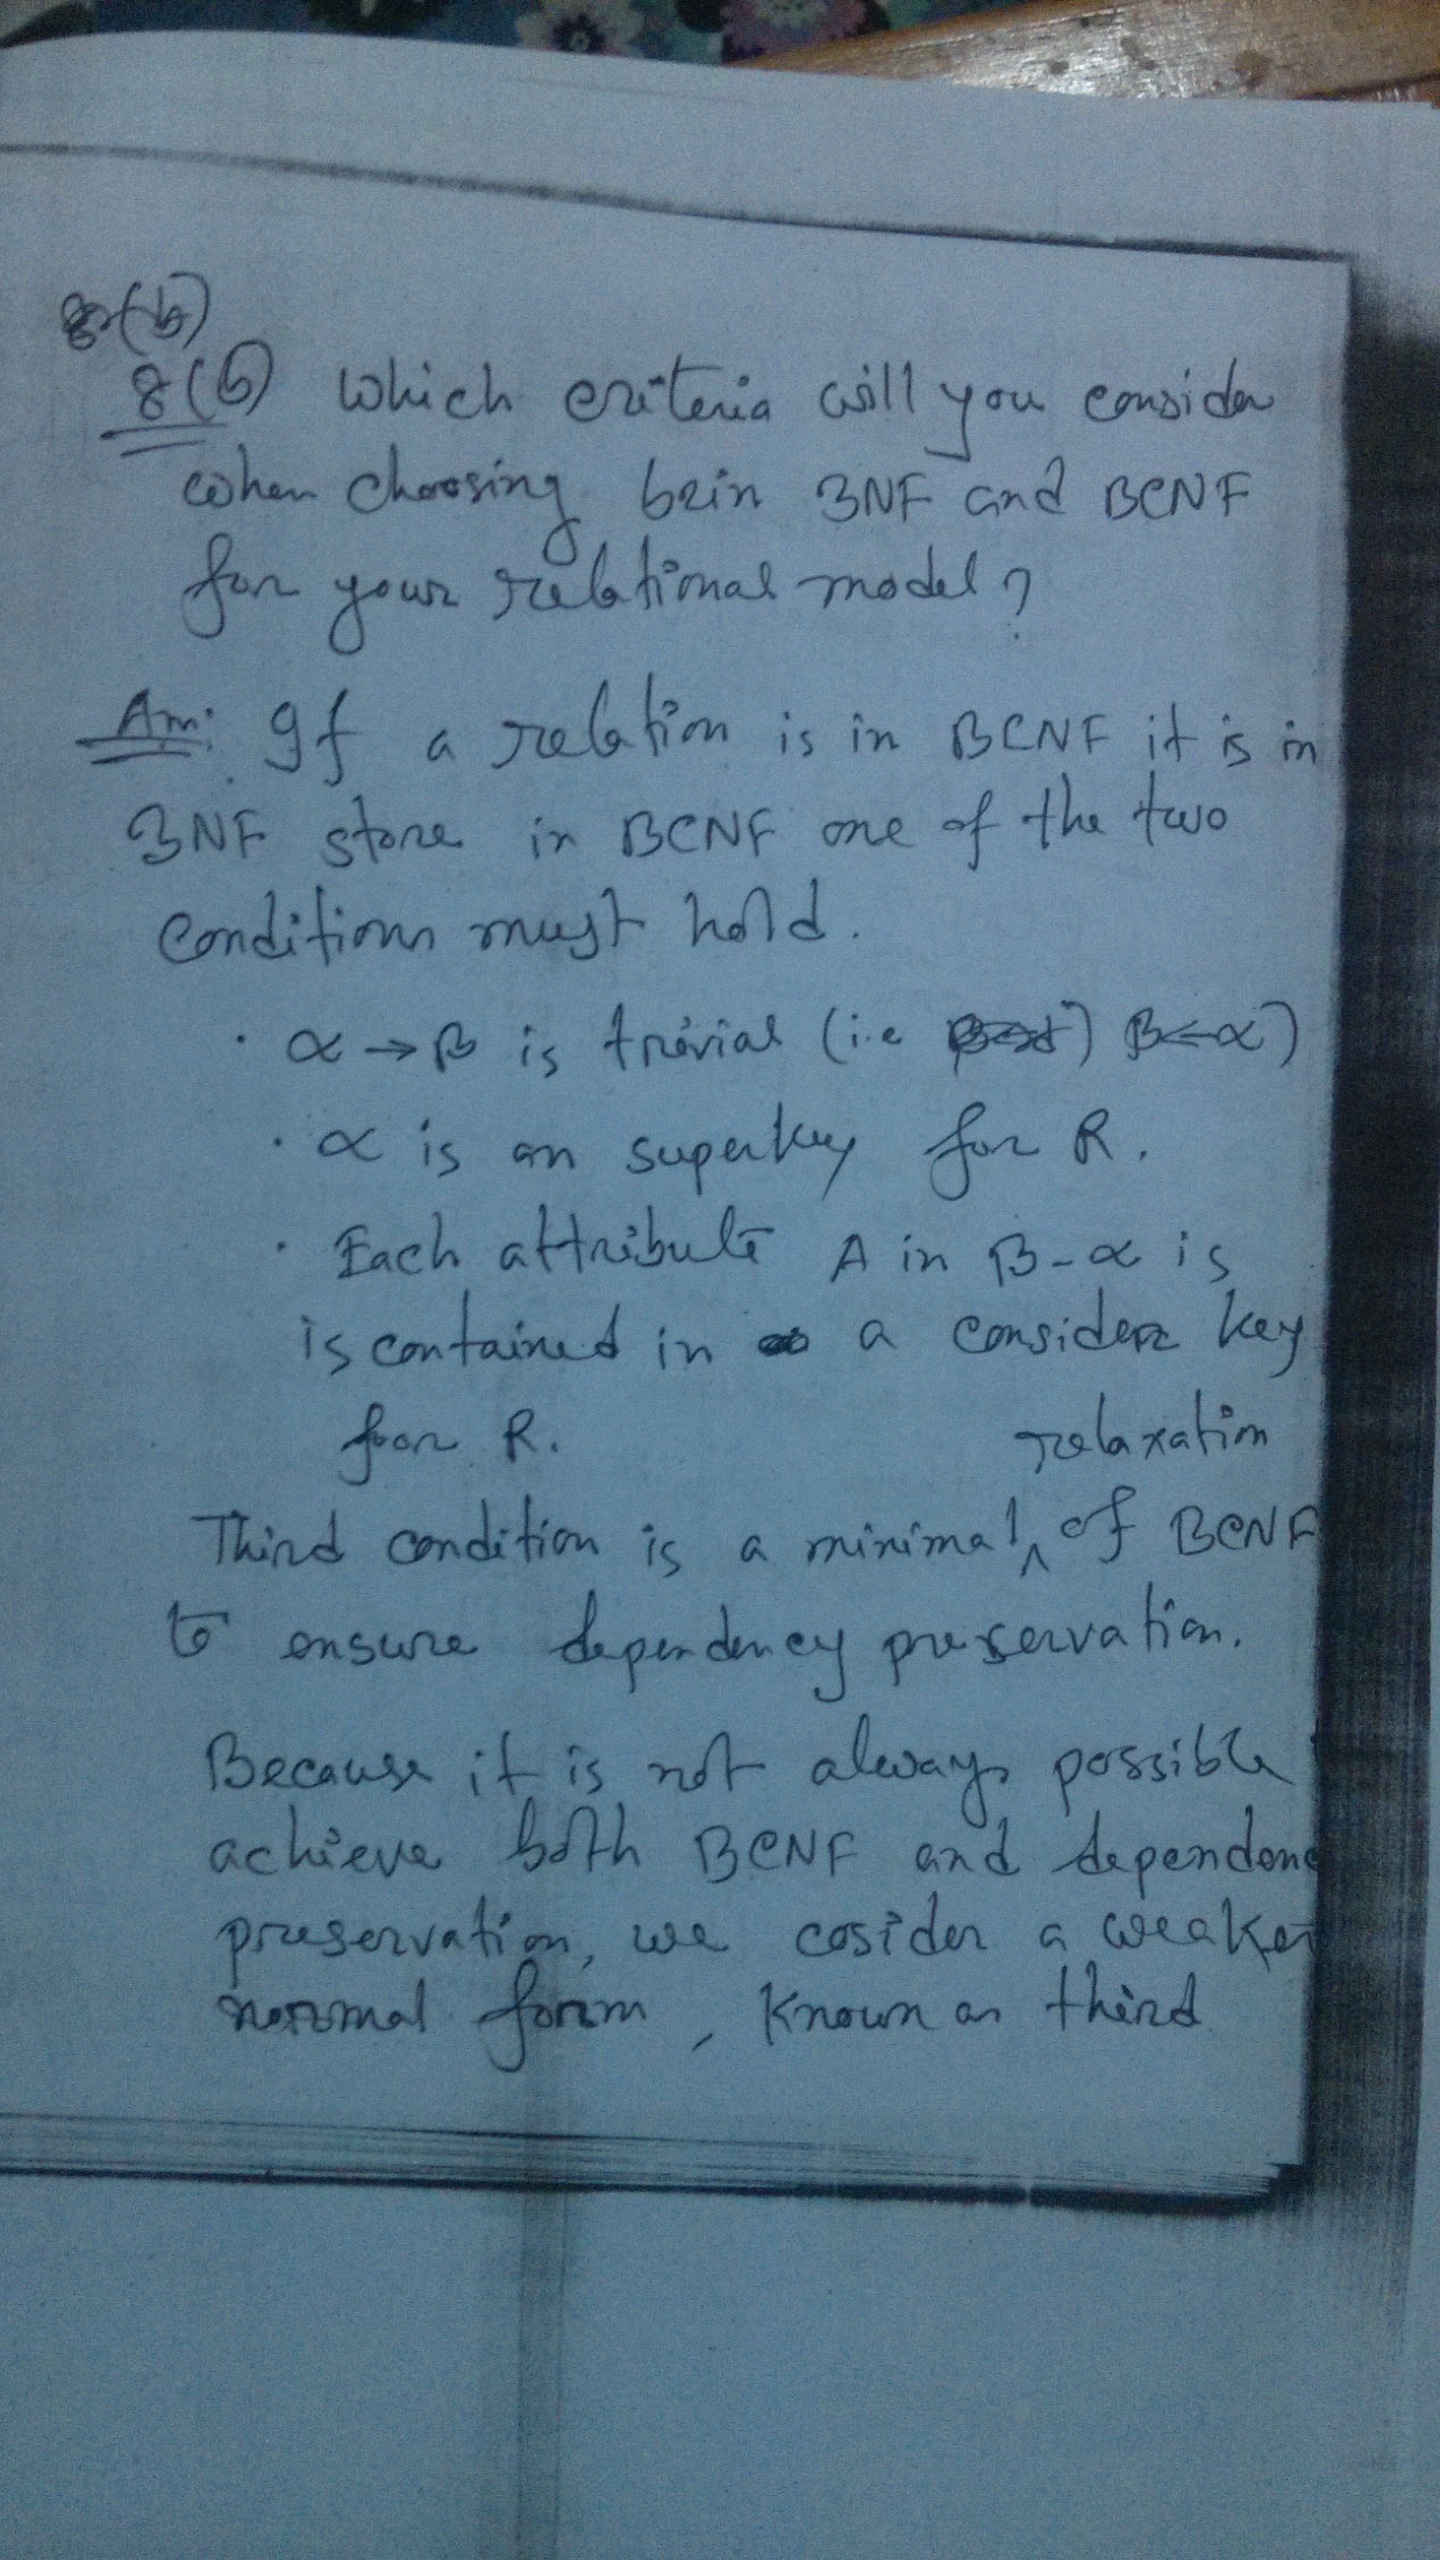 8(b)
8(b) Which criteria will you consider
when choosing bein 3NF and BCNF
for your relational model?
Ans: If a relation is in BCNF it is in
3NF store in BCNF one of the two
conditions must hold.
· α → β is trivial (i.e β ⊂ α)
· α is an superkey for R.
· Each attribute A in β - α is
is contained in a consider key
for R.
relaxation
Third condition is a minimal ^ of BCNF
to ensure dependency preservation.
Because it is not always possible
achieve both BCNF and dependenc
preservation, we cosider a weaker
normal form, known as third